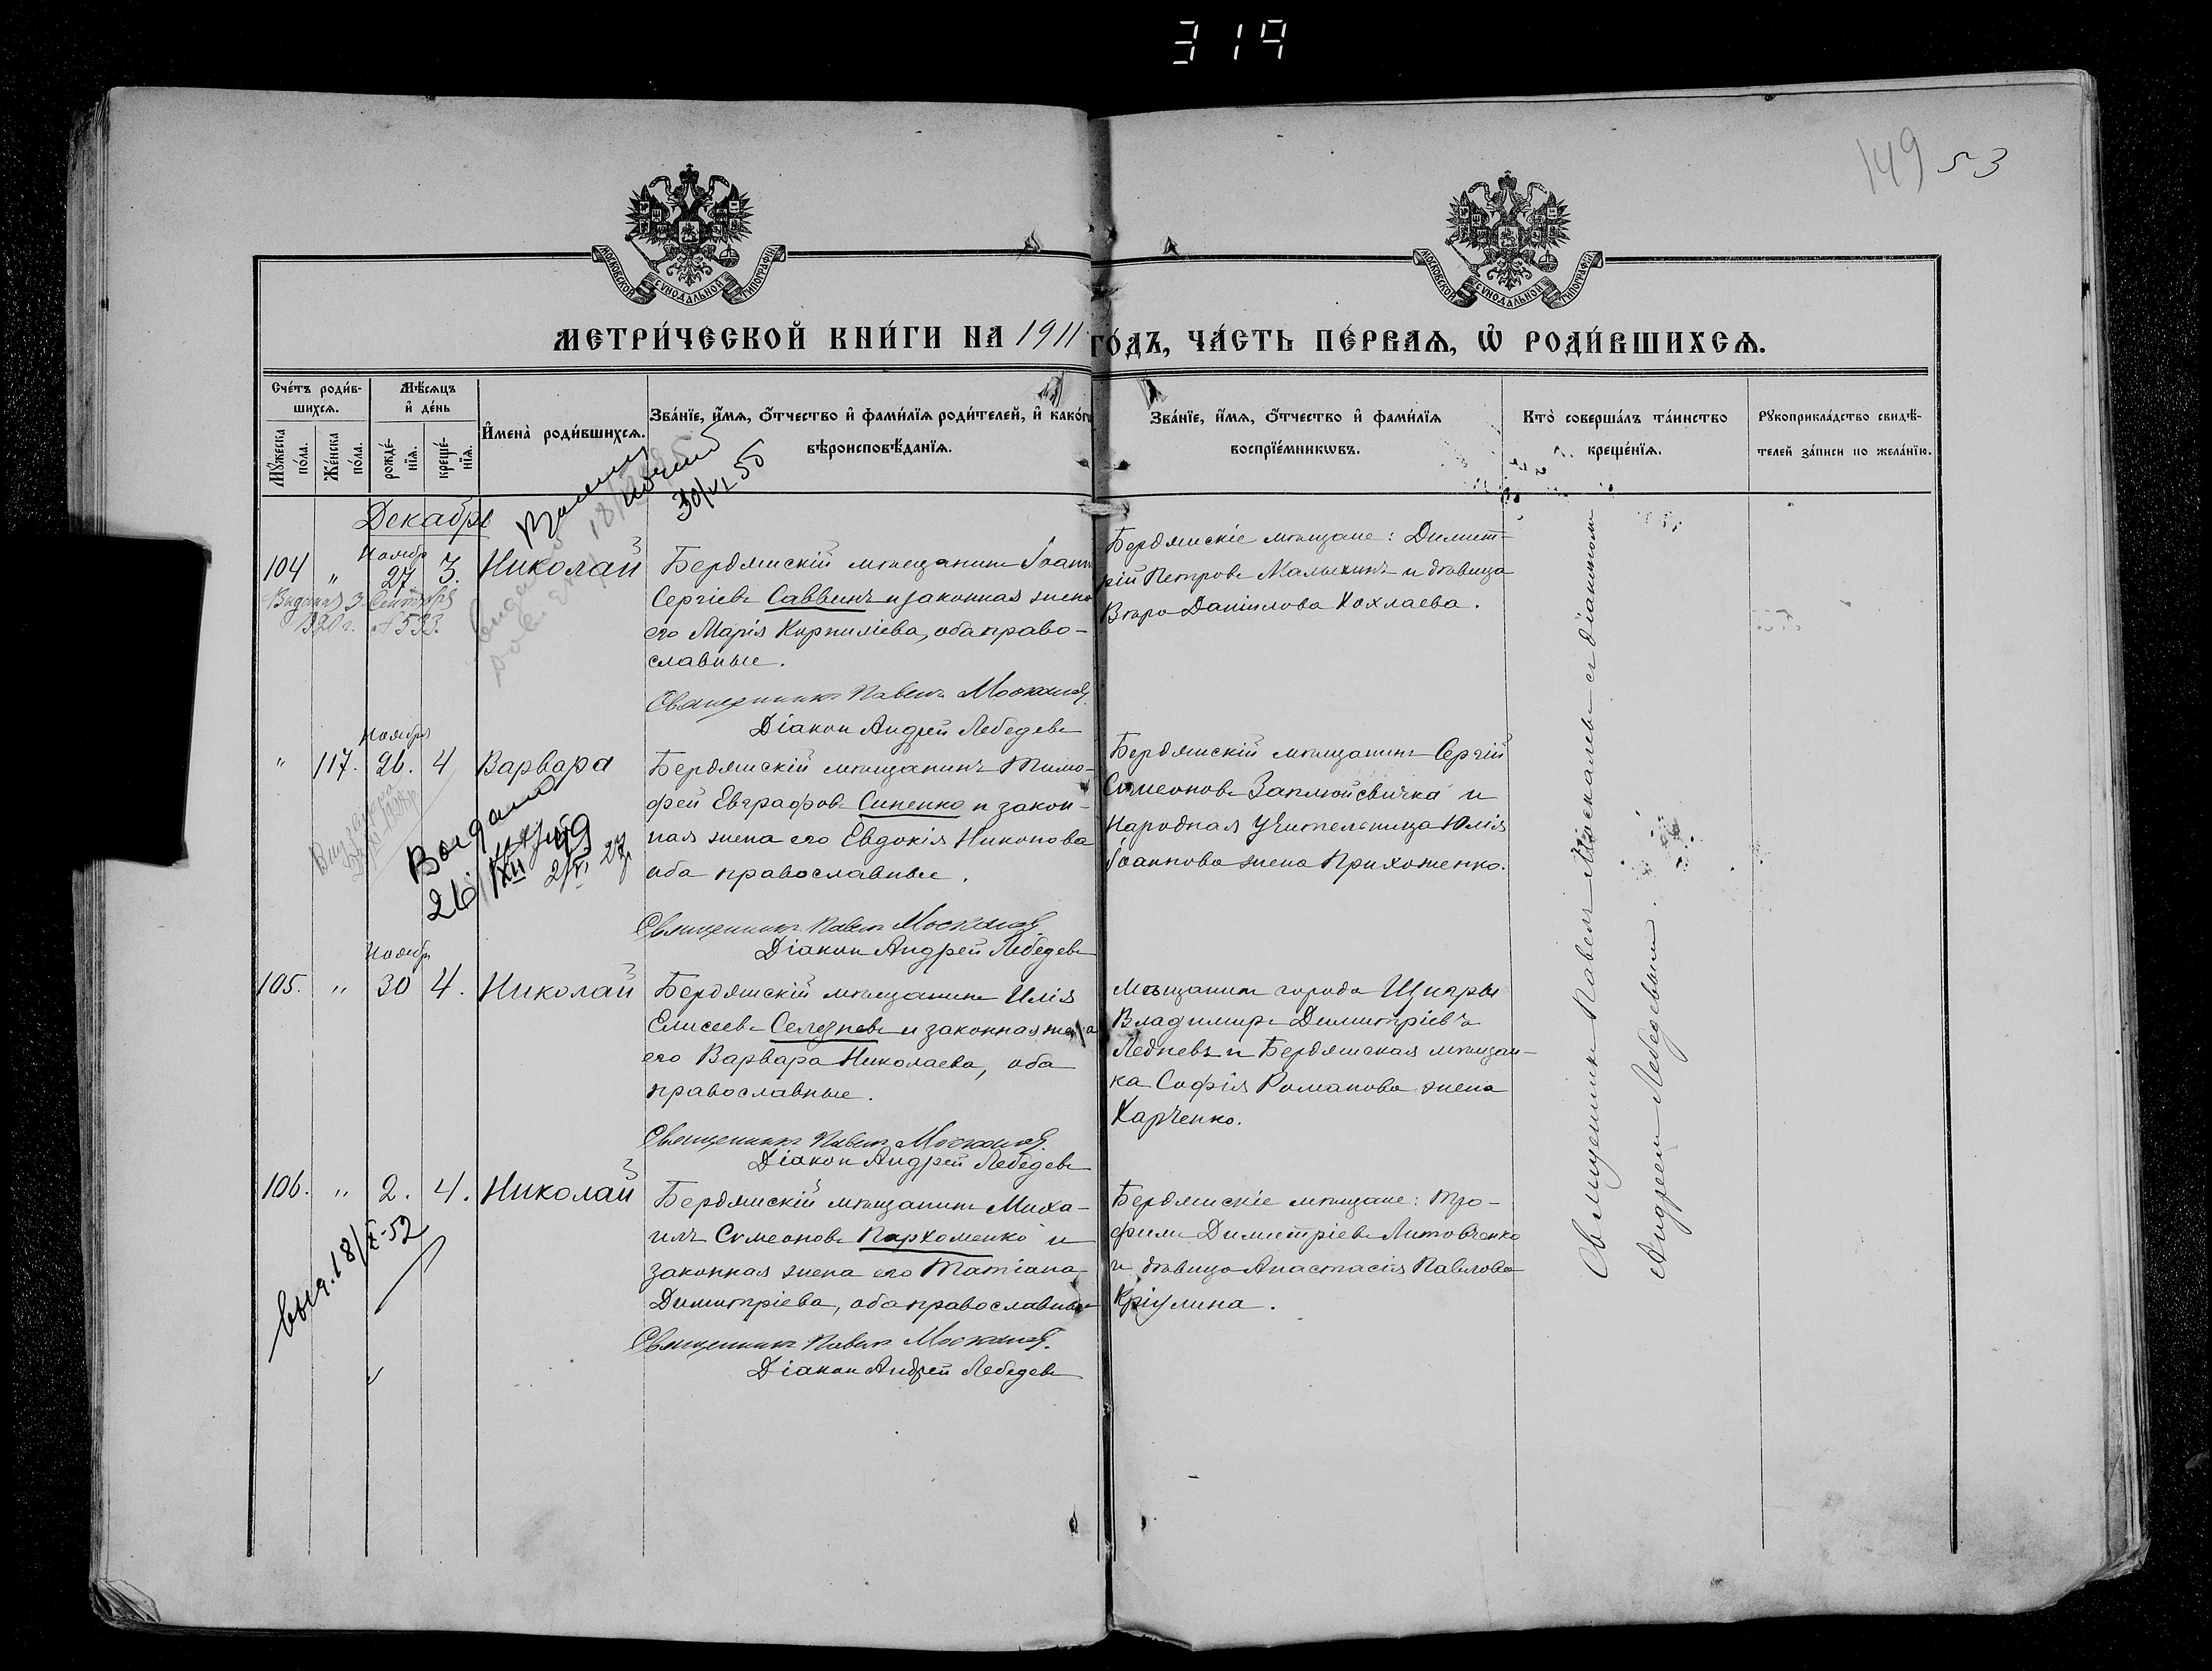 319
149 53
МОСКОВСКОЙ СѴНОДАЛЬНОЙ ТИПОГРАФІИ
МОСКОВСКОЙ СѴНОДАЛЬНОЙ ТИПОГРАФІИ
МЕТРИ́ЧЕСКОЙ КНИ́ГИ НА 1911 ГО́ДЪ, ЧА́СТЬ ПЕ́РВАѦ, Ѡ РОДИ́ВШИХСѦ.
Сче́тъ роди́в-
шихсѧ.
Мꙋ́жеска по́ла.
Же́нска по́ла.
Мѣ́сѧцъ
и҆ де́нь
рожде́-
нїѧ.
креще́-
нїѧ.
И҆мена̀ роди́вшихсѧ.
Зва́нїе, и҆́мѧ, ѻ҆́тчество и҆ фами́лїѧ роди́телей, и҆ како́гѡ
вѣроисповѣ́данїѧ.
Зва́нїе, и҆́мѧ, ѻ҆́тчество и҆ фами́лїѧ
воспрїе́мникѡвъ.
Кто̀ соверша́лъ та́инство
креще́нїѧ.
Рꙋкоприкла́дство свидѣ́-
телей за́писи по жела́нїю.
30/VI 55
Декабрь
104 " Ноября 27 3. Николай
Выдана 3 Сентября
1920 г. № 533.
Бердянскій мѣщанинъ Іоаннъ
Сергіевъ Саввинъ и законная жена
его Марія Корниліева, оба право-
славные.
Священникъ Павелъ Москалевъ
Діаконъ Андрей Лебедевъ
Бердянскіе мѣщане: Димит-
рій Петровъ Малыхинъ и дѣвица
Вѣра Даніилова Хохлаева.
" 117. Ноября 26. 4 Варвара
Выдано
26/XII 49
Бердянскій мѣщанинъ Тимо-
фей Евграфовъ Синенко и закон-
ная жена его Евдокія Никонова
оба православные.
Священникъ Павелъ Москалевъ
Діаконъ Андрей Лебедевъ
Бердянскій мѣщанинъ Сергій
Симеоновъ Заплюйсвичка и
народная учительница Юлія
Іоаннова жена Прихоженко.
105. " Ноября 30 4. Николай
Бердянскій мѣщанинъ Илія
Елисеевъ Селезневъ и законная жена
его Варвара Николаева, оба
православные.
Священникъ Павелъ Москалевъ
Діаконъ Андрей Лебедевъ
Мѣщанинъ города Щигры
Владимиръ Димитріевъ
Ледневъ и Бердянская мѣщан-
ка Софія Романова жена
Харченко.
106. " 2. 4. Николай
выд. 18/X-52
Бердянскій мѣщанинъ Миха-
илъ Симеоновъ Пархоменко и
законная жена его Татіана
Димитріева, оба православные
Священникъ Павелъ Москалевъ
Діаконъ Андрей Лебедевъ
Бердянскіе мѣщане: Тро-
фимъ Димитріевъ Литовченко
и дѣвица Анастасія Павлова
Кріулина.
Священникъ Павелъ Москалевъ съ діакономъ
Андреемъ Лебедевымъ.